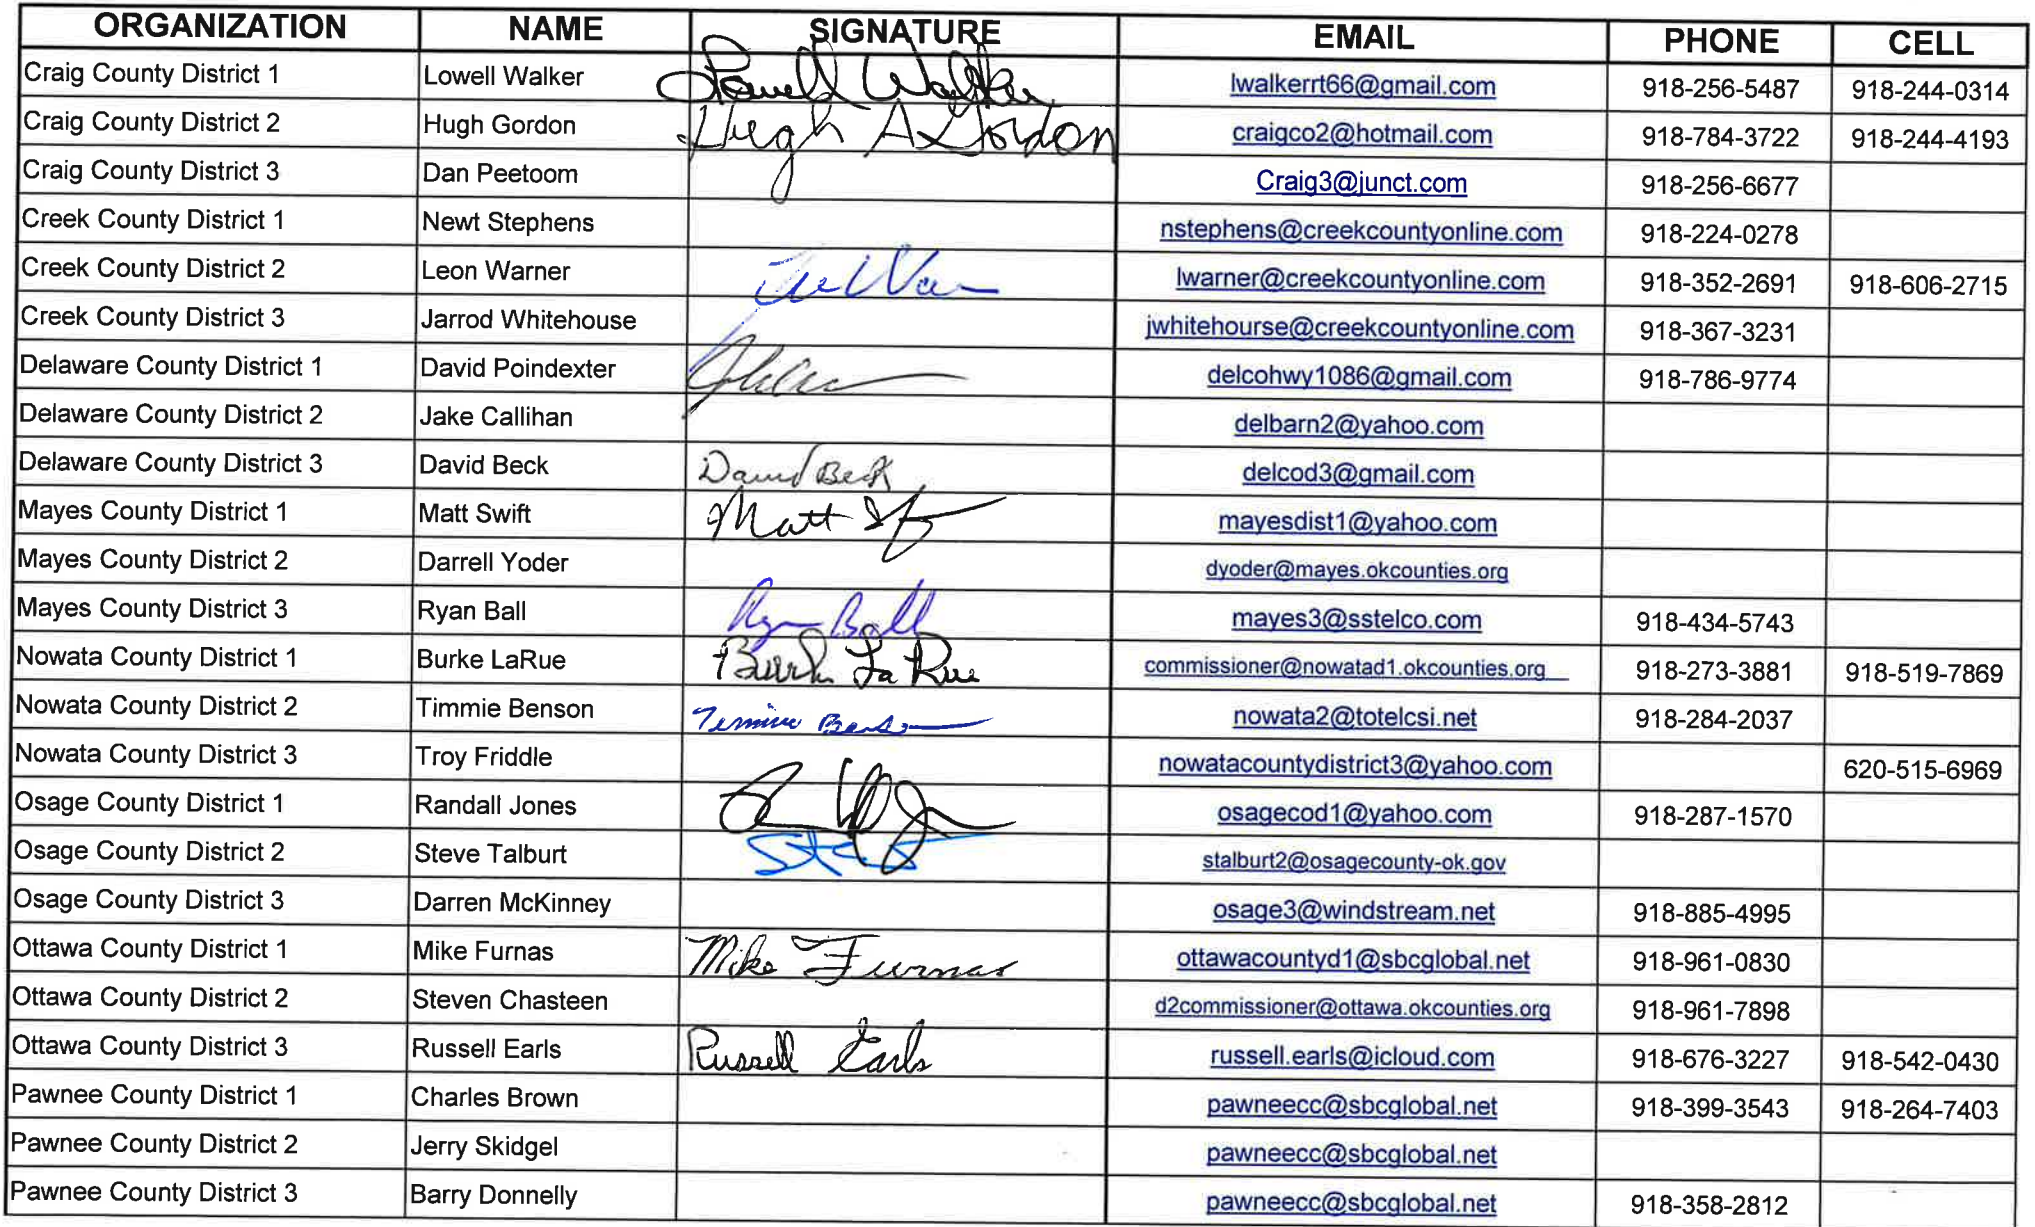 ORGANIZATION NAME SIGNATURE EMAIL PHONE CELL
Craig County District 1 Lowell Walker Lowell Walker lwalkerrt66@gmail.com 918-256-5487 918-244-0314
Craig County District 2 Hugh Gordon Hugh A Gordon craigco2@hotmail.com 918-784-3722 918-244-4193
Craig County District 3 Dan Peetoom Craig3@junct.com 918-256-6677
Creek County District 1 Newt Stephens nstephens@creekcountyonline.com 918-224-0278
Creek County District 2 Leon Warner lwarner@creekcountyonline.com 918-352-2691 918-606-2715
Creek County District 3 Jarrod Whitehouse jwhitehourse@creekcountyonline.com 918-367-3231
Delaware County District 1 David Poindexter delcohwy1086@gmail.com 918-786-9774
Delaware County District 2 Jake Callihan delbarn2@yahoo.com
Delaware County District 3 David Beck David Beck delcod3@gmail.com
Mayes County District 1 Matt Swift Matt mayesdist1@yahoo.com
Mayes County District 2 Darrell Yoder dyoder@mayes.okcounties.org
Mayes County District 3 Ryan Ball Ryan Ball mayes3@sstelco.com 918-434-5743
Nowata County District 1 Burke LaRue Burke LaRue commissioner@nowatad1.okcounties.org 918-273-3881 918-519-7869
Nowata County District 2 Timmie Benson Timmie Benson nowata2@totelcsi.net 918-284-2037
Nowata County District 3 Troy Friddle nowatacountydistrict3@yahoo.com 620-515-6969
Osage County District 1 Randall Jones osagecod1@yahoo.com 918-287-1570
Osage County District 2 Steve Talburt stalburt2@osagecounty-ok.gov
Osage County District 3 Darren McKinney osage3@windstream.net 918-885-4995
Ottawa County District 1 Mike Furnas Mike Furnas ottawacountyd1@sbcglobal.net 918-961-0830
Ottawa County District 2 Steven Chasteen d2commissioner@ottawa.okcounties.org 918-961-7898
Ottawa County District 3 Russell Earls Russell Earls russell.earls@icloud.com 918-676-3227 918-542-0430
Pawnee County District 1 Charles Brown pawneecc@sbcglobal.net 918-399-3543 918-264-7403
Pawnee County District 2 Jerry Skidgel pawneecc@sbcglobal.net
Pawnee County District 3 Barry Donnelly pawneecc@sbcglobal.net 918-358-2812